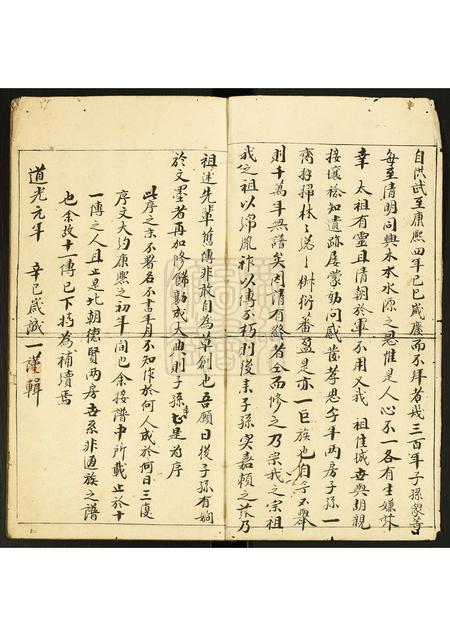 自洪武至康熙四年已巳歲廩而不拜者幾三百年子孫眾等
每至清明同興水木水源之思惟是人心不一各有主嫌
幸 太祖有靈且清朝於軍不用又我 祖住城與胡親
接壤裕知遺跡屢蒙勸問感孝思壬午兩房子孫一
齊掃林衍蕃盈是亦一巨族也自
則十萬年無譜矣因請有終者全而修之乃宗我之宗祖
我之祖以綿風祚以傳不朽則後來子孫実嘉賴之茲乃
祖述先軰舊傳非敢自為草創也吾願日後子孫有嫺
於文墨者再加修飾勒成大曲則子孫是為序
此序之末不署名不書年月不知作於何人成於何日三復
序文大約康熙之初年間也余接譜中所載止於十
一傳之人且止是北朝德賢兩房吾系非通族之譜
也余故十一傳已下特為補續焉
道光元年 辛巳歲誠一謹輯